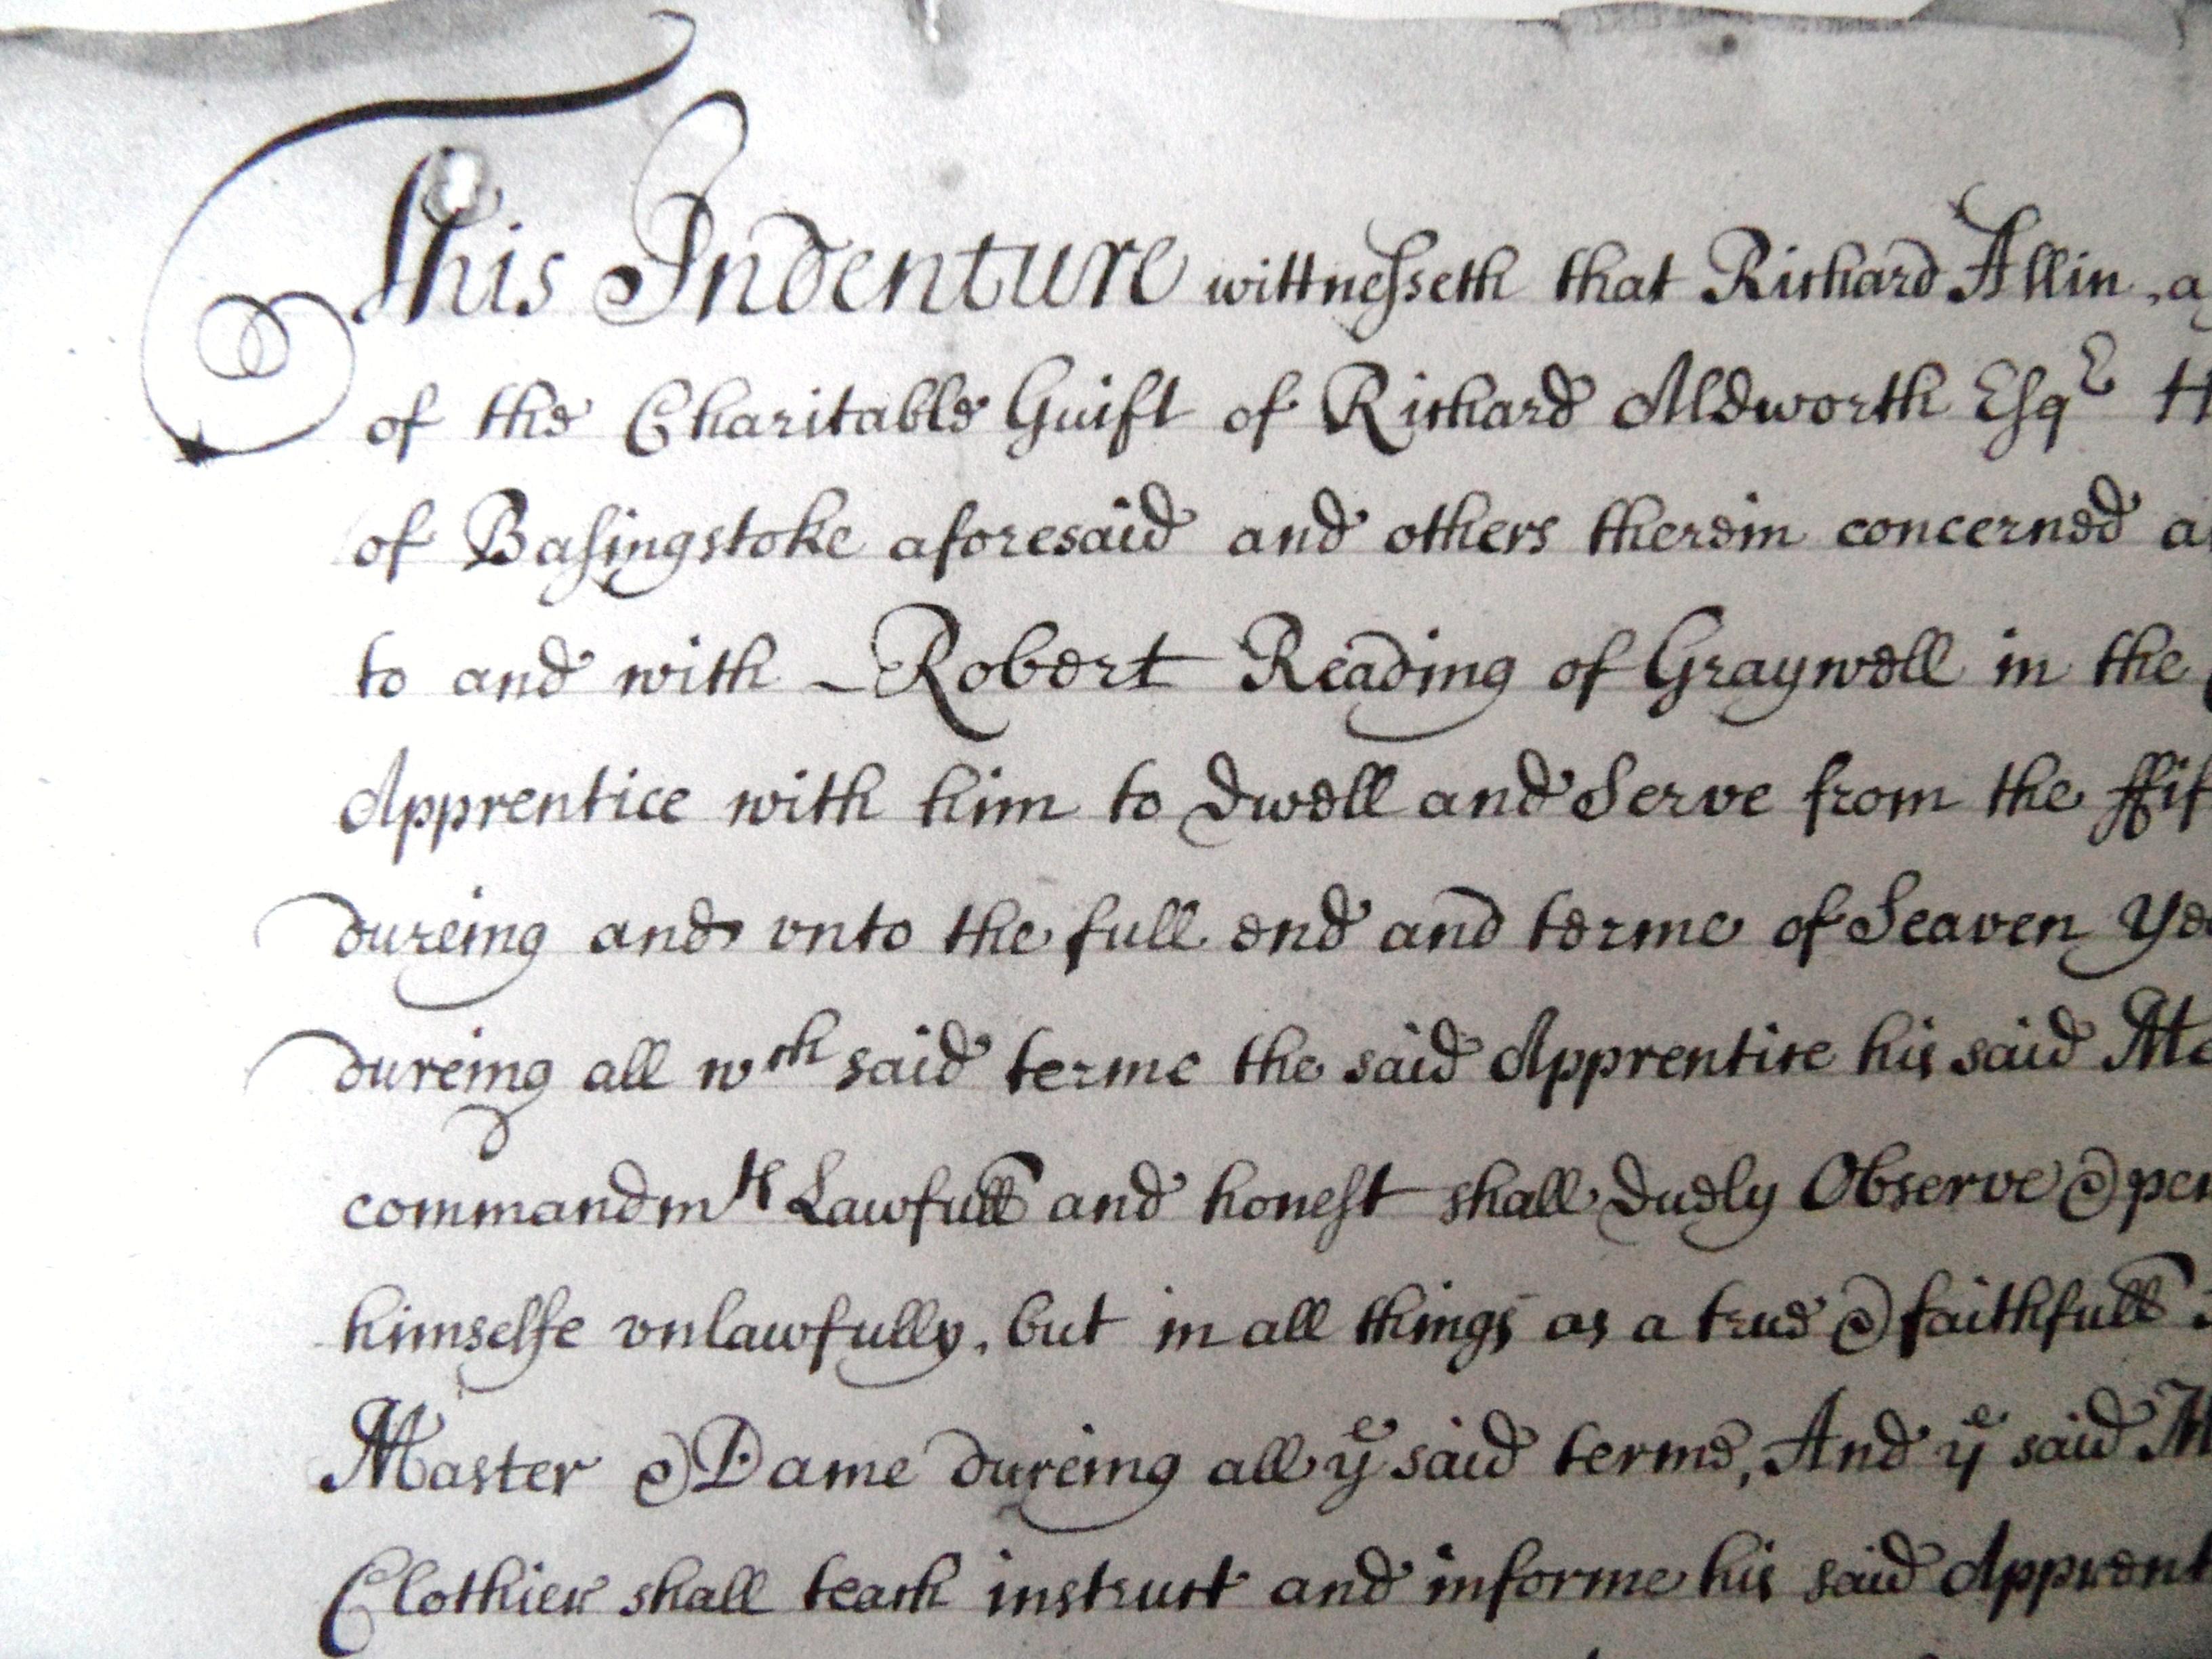 This Indenture wittnesseth that Richard Allin, a
of the Charitable Guift of Richard Aldworth Esqr
of Basingstoke aforesaid and others therein concerned
to and with Robert Reading of Graywell in the
Apprentice with him to dwell and Serve from the ffif
dureing and vnto the full end and terme of Seaven Yea
dureing all wch said terme the said Apprentice his said
commandmts Lawfull and honest shall duely Observe & per
himselfe vnlawfully, but in all things as a true & faithfull
Master & Dame dureing all ye said terme, And ye said M
Clothier shall teach instruct and informe his said Apprent